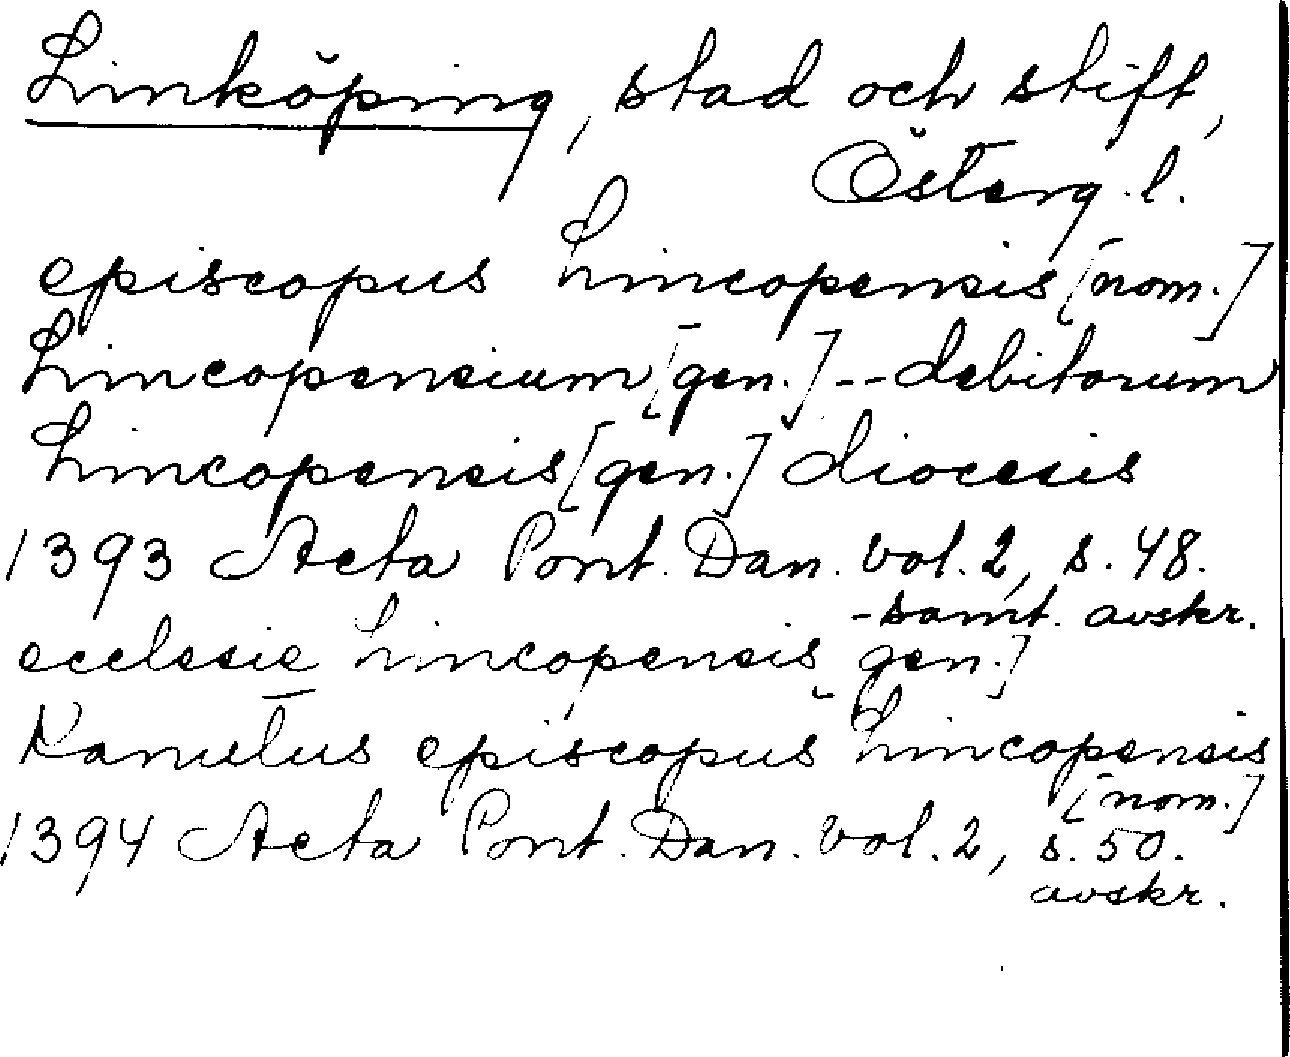 Linköping, stad och stift,
Österg.l.
episcopus Lincopensis [nom.]
Lincopensium [gen.] -- debitorum
Lincopensis [gen.] diocesis
1393 Acta Pont. Dan. vol. 2, s. 48.
-samt. avskr.
ecclesie Lincopensis gen.]
Kanutus episcopus Lincopensis
[nom.]
1394 Acta Pont. Dan. vol. 2, s. 50.
avskr.